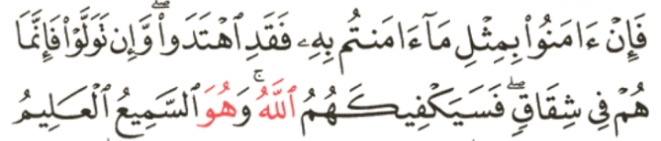 فَإِنْ ءَامَنُوا۟ بِمِثْلِ مَآ ءَامَنتُم بِهِۦ فَقَدِ ٱهْتَدَوا۟ ۖ وَّإِن تَوَلَّوْا۟ فَإِنَّمَا
هُمْ فِى شِقَاقٍ ۖ فَسَيَكْفِيكَهُمُ ٱللَّهُ ۚ وَهُوَ ٱلسَّمِيعُ ٱلْعَلِيمُ